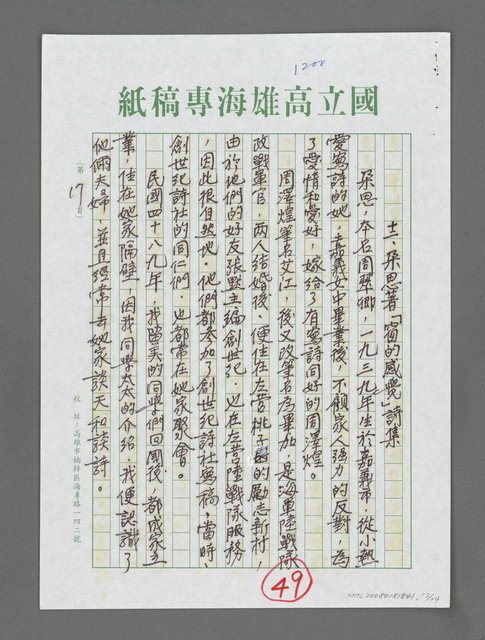 1200
國立高雄海專稿紙
十二、朵思著「窗的感覺」詩集
朵思，本名周翠卿，一九三九年生於嘉義市，從小熱
愛寫詩的她，嘉義女中畢業後，不顧家人強力的反對，為
了愛情和愛好，嫁給了有寫詩同好的周澤煌。
周澤煌筆名艾江，後又改筆名為畢加，是海軍陸戰隊
政戰軍官，兩人結婚後，便住在左營桃子園的勵志新村，
由於他們的好友張默主編創世紀，也在左營陸戰隊服務
，因此很自然地，他們都參加了創世紀詩社寫稿，當時，
創世紀詩社的同仁們，也都常在她家聚會。
民國四十八九年，我留美的同學們回國後，都成家立
業，住在她家隔壁，因我同學太太的介紹，我便認識了
他倆夫婦，並且經常去她家談天和談詩。
(第17頁)
校址：高雄市楠梓區海專路一四二號
49
NMTL20080181841, 13/24